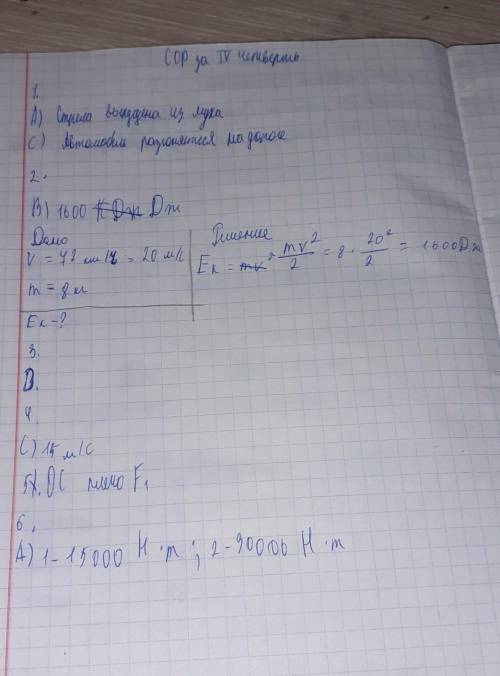 СОР за IV четверть
1.
А) Стрела выпущена из лука
С) Автомобиль разгоняется на дороге
2.
В) 1600 Дж
Дано
V = 72 км/ч = 20 м/с
m = 8 кг
Ек - ?
Решение
Ек = mv²/2 = 8 · 20²/2 = 1600 Дж
3.
D.
4.
С) 15 м/с
5. ОС плечо F₁
6.
А) 1-15000 Н·m ; 2-30000 Н·m